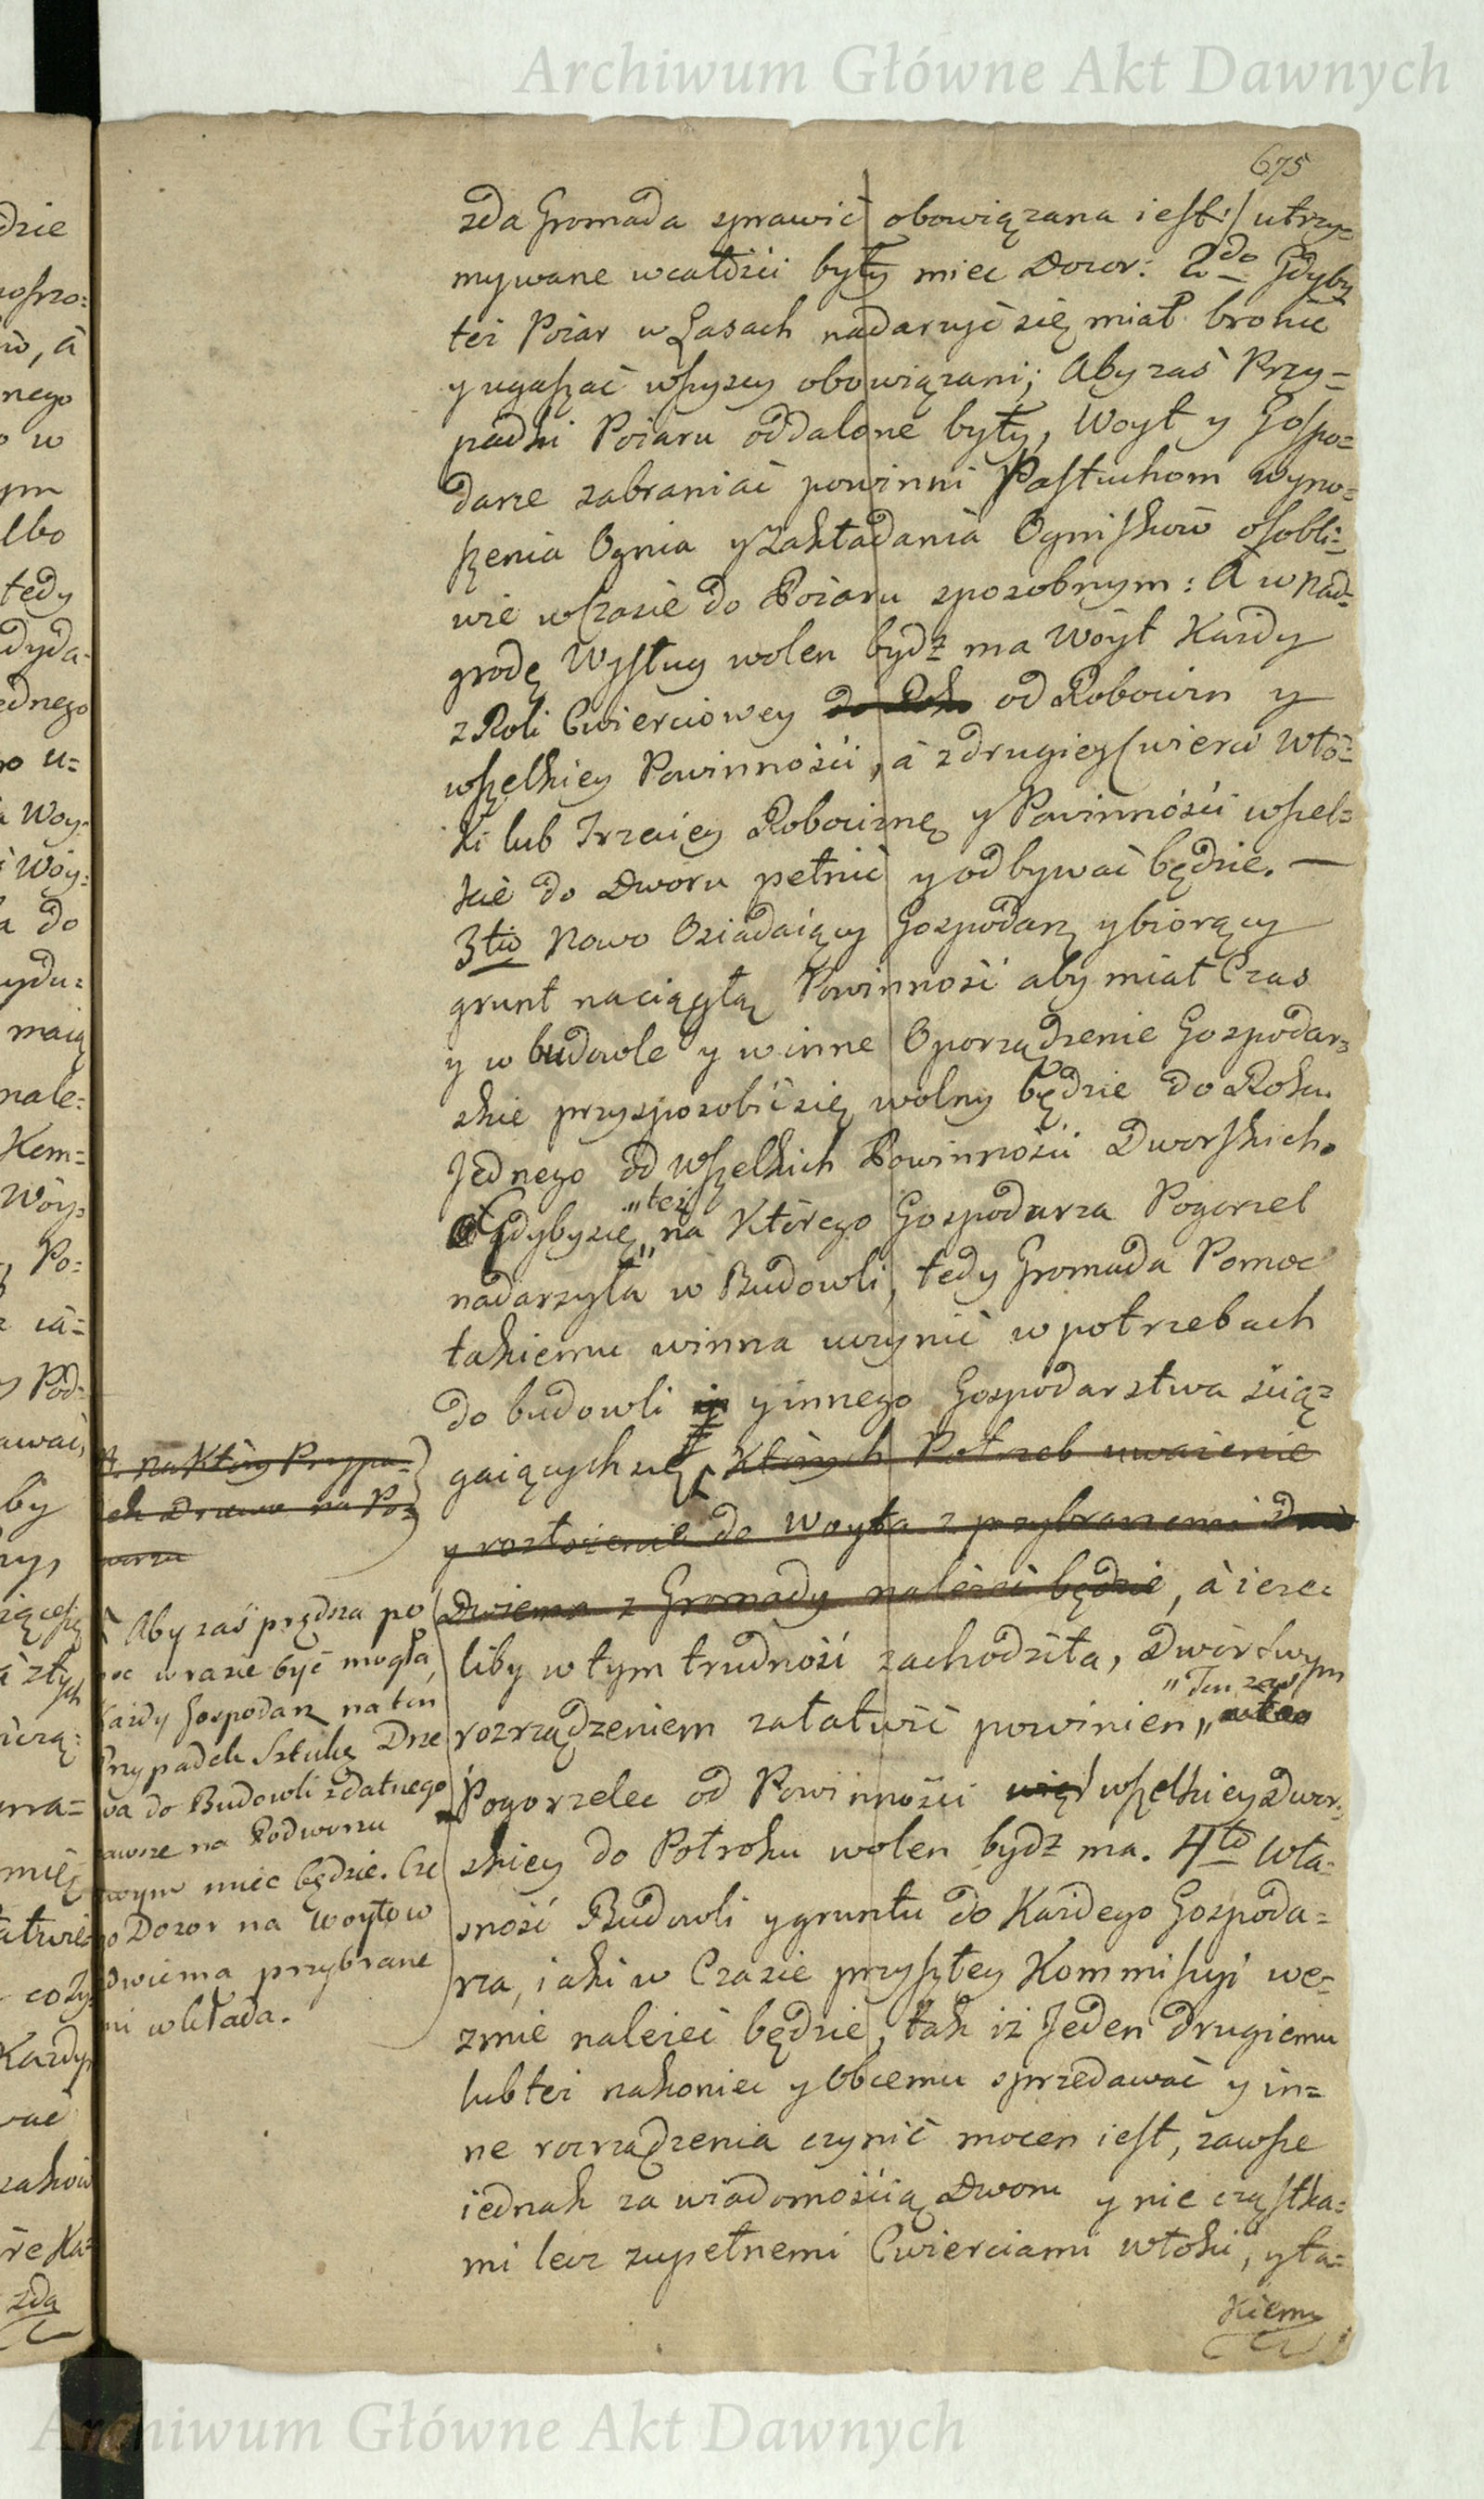 Archiwum Główne Akt Dawnych
675
żda Gromada sprawić obowiązana iest:/ utrzy=
mywane wcałości były miec Dozor: 2do Gdyby
też Pożar w Lasach nadarzyć się miał bronić
y ugaszać wszyscy obowiązani; Aby zaś Przy=
padki Pożaru oddalone były, Woyt y Gospo=
darze zabraniać powinni Pastuchom wyno=
szenia Ognia y zakładania Ognisków osobli=
wie wczasie do Pożaru sposobnym: A w Nad=
grodę Wysług wolen bydz ma Wóyt Każdy
z Roli Cwierciowey do Roku od Robocizn y
wszelkiey Powinności, a z drugiey Cwierci Włó=
ki lub Trzeciey Robociznę y Powinności wszel=
kie do Dworu pełnić y odbywać będzie. —
3tio Nowo Osiadaiący Gospodarz y biorący
grunt naciągłą Powinność aby miał Czas
y w budowle y w inne Oporządzenie Gospodar=
skie przysposobić się wolny będzie do Roku
Jednego od wszelkich Powinności Dworskich.
"też
Gdyby się "na Którego Gospodarza Pogorzel
nadarzyła w Budowli, tedy Gromada Pomoc
takiemu winna uczynić w potrzebach
do budowli y innego Gospodarstwa ścią=
gaiących się, Których Potrzeb uważenie
y rozłożenie do Woyta z przybranemi
Dwiema z Gromady należeć będzie, à ieże=
liby w tym trudność zachodziła, Dwór swym
"Ten zaś
rozrządzeniem załatwić powinien "
Pogorzelec od Powinności wszelkiey Dwor=
skiey do Połroku wolen bydz ma. 4to Wła=
sność Budowli y gruntu do Każdego Gospoda=
rza, iaki w Czasie przyszłey Kommissyi we=
zmie należeć będzie, tak iż Jeden Drugiemu
lub też nakoniec y Obcemu sprzedawać y in=
ne rozrządzenia czynić mocen iest, zawsze
iednak za wiadomością Dworu y nie cząstka=
mi lecz zupełnemi Cwierciami włóki, y ta=
kiemu
na Który Przypa=
ek Drzewo na Po=
Aby zaś prędsza po
oc w razie być mogła,
każdy Gospodarz na ten
Przypadek Sztukę Drze
wa do Budowli zdatnego
zawsze na Podworzu
swym mieć będzie. Cze
go Dozor na Woytow
z dwiema przybrane
mi wkłada.
dzie
nego
o w
ym
lbo
tedy
dyda=
ednego
o u=
Woy=
Wóy=
a do
ydu=
maią
nale=
Kem=
Wóy=
Po=
Pod=
by
ma=
mię
Każdy
żda
Archiwum Główne Akt Dawnych